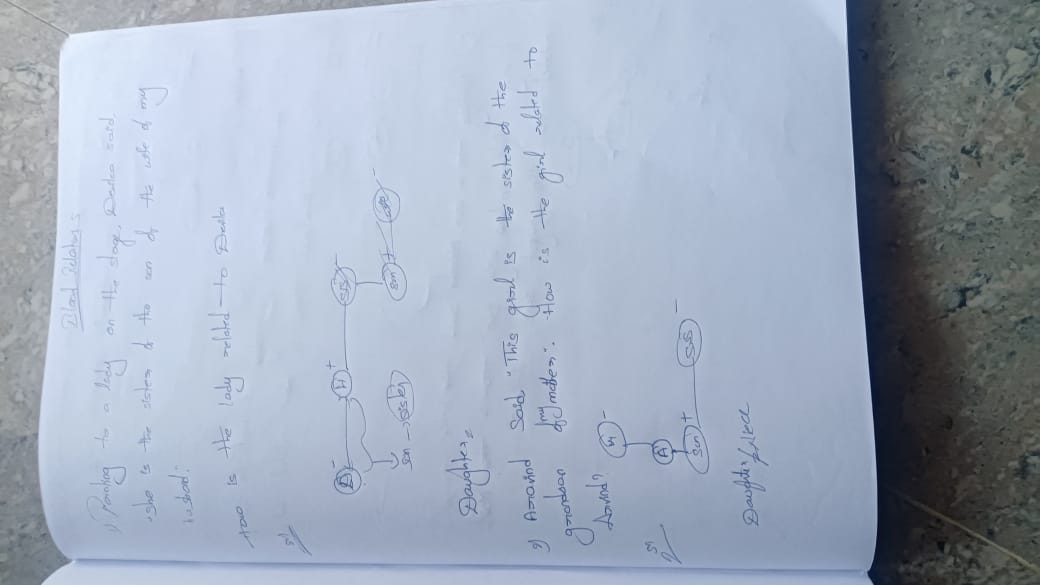 Blood Relations
1) Pointing to a lady on the stage, Deeka said,
"she is the sister of the son of the wife of my
husband.
How is the lady related to Deeka
D - H + sis -
son → sister son +
Daughter
2) Aravind Said "This girl is the sister of the
grandson of my mother". How is the girl related to
Aravind?
M -
A
son + sis -
Daughter / Niece